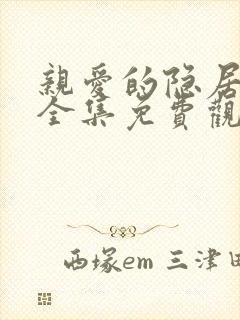 親愛的隐居
全集免費觀
西塚em 三津田